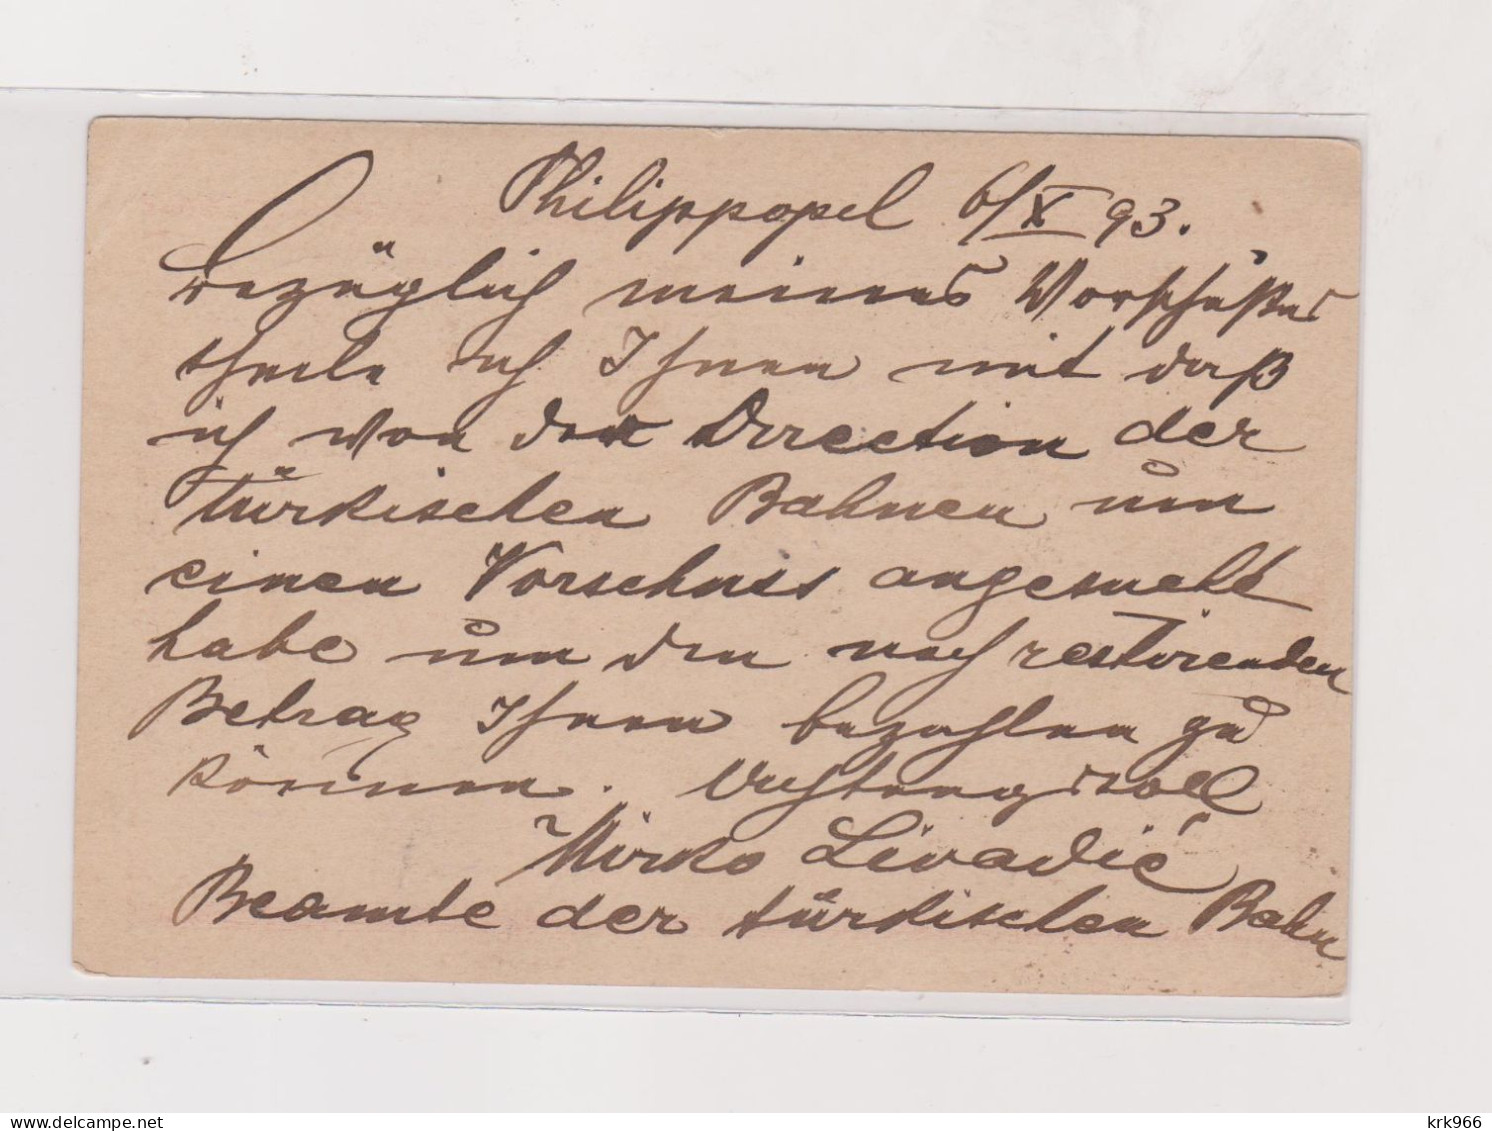 Philippopel 6/X 93.
Bezüglich meines Vorschußes
theile ich Ihnen mit daß
ich von der Direction der
türkischen Bahnen um
einen Vorschuss angesucht
habe um den noch restirenden
Betrag Ihnen bezahlen zu
können. Achtungsvoll
Mirko Livadić
Beamte der türkischen Bahn
krk966